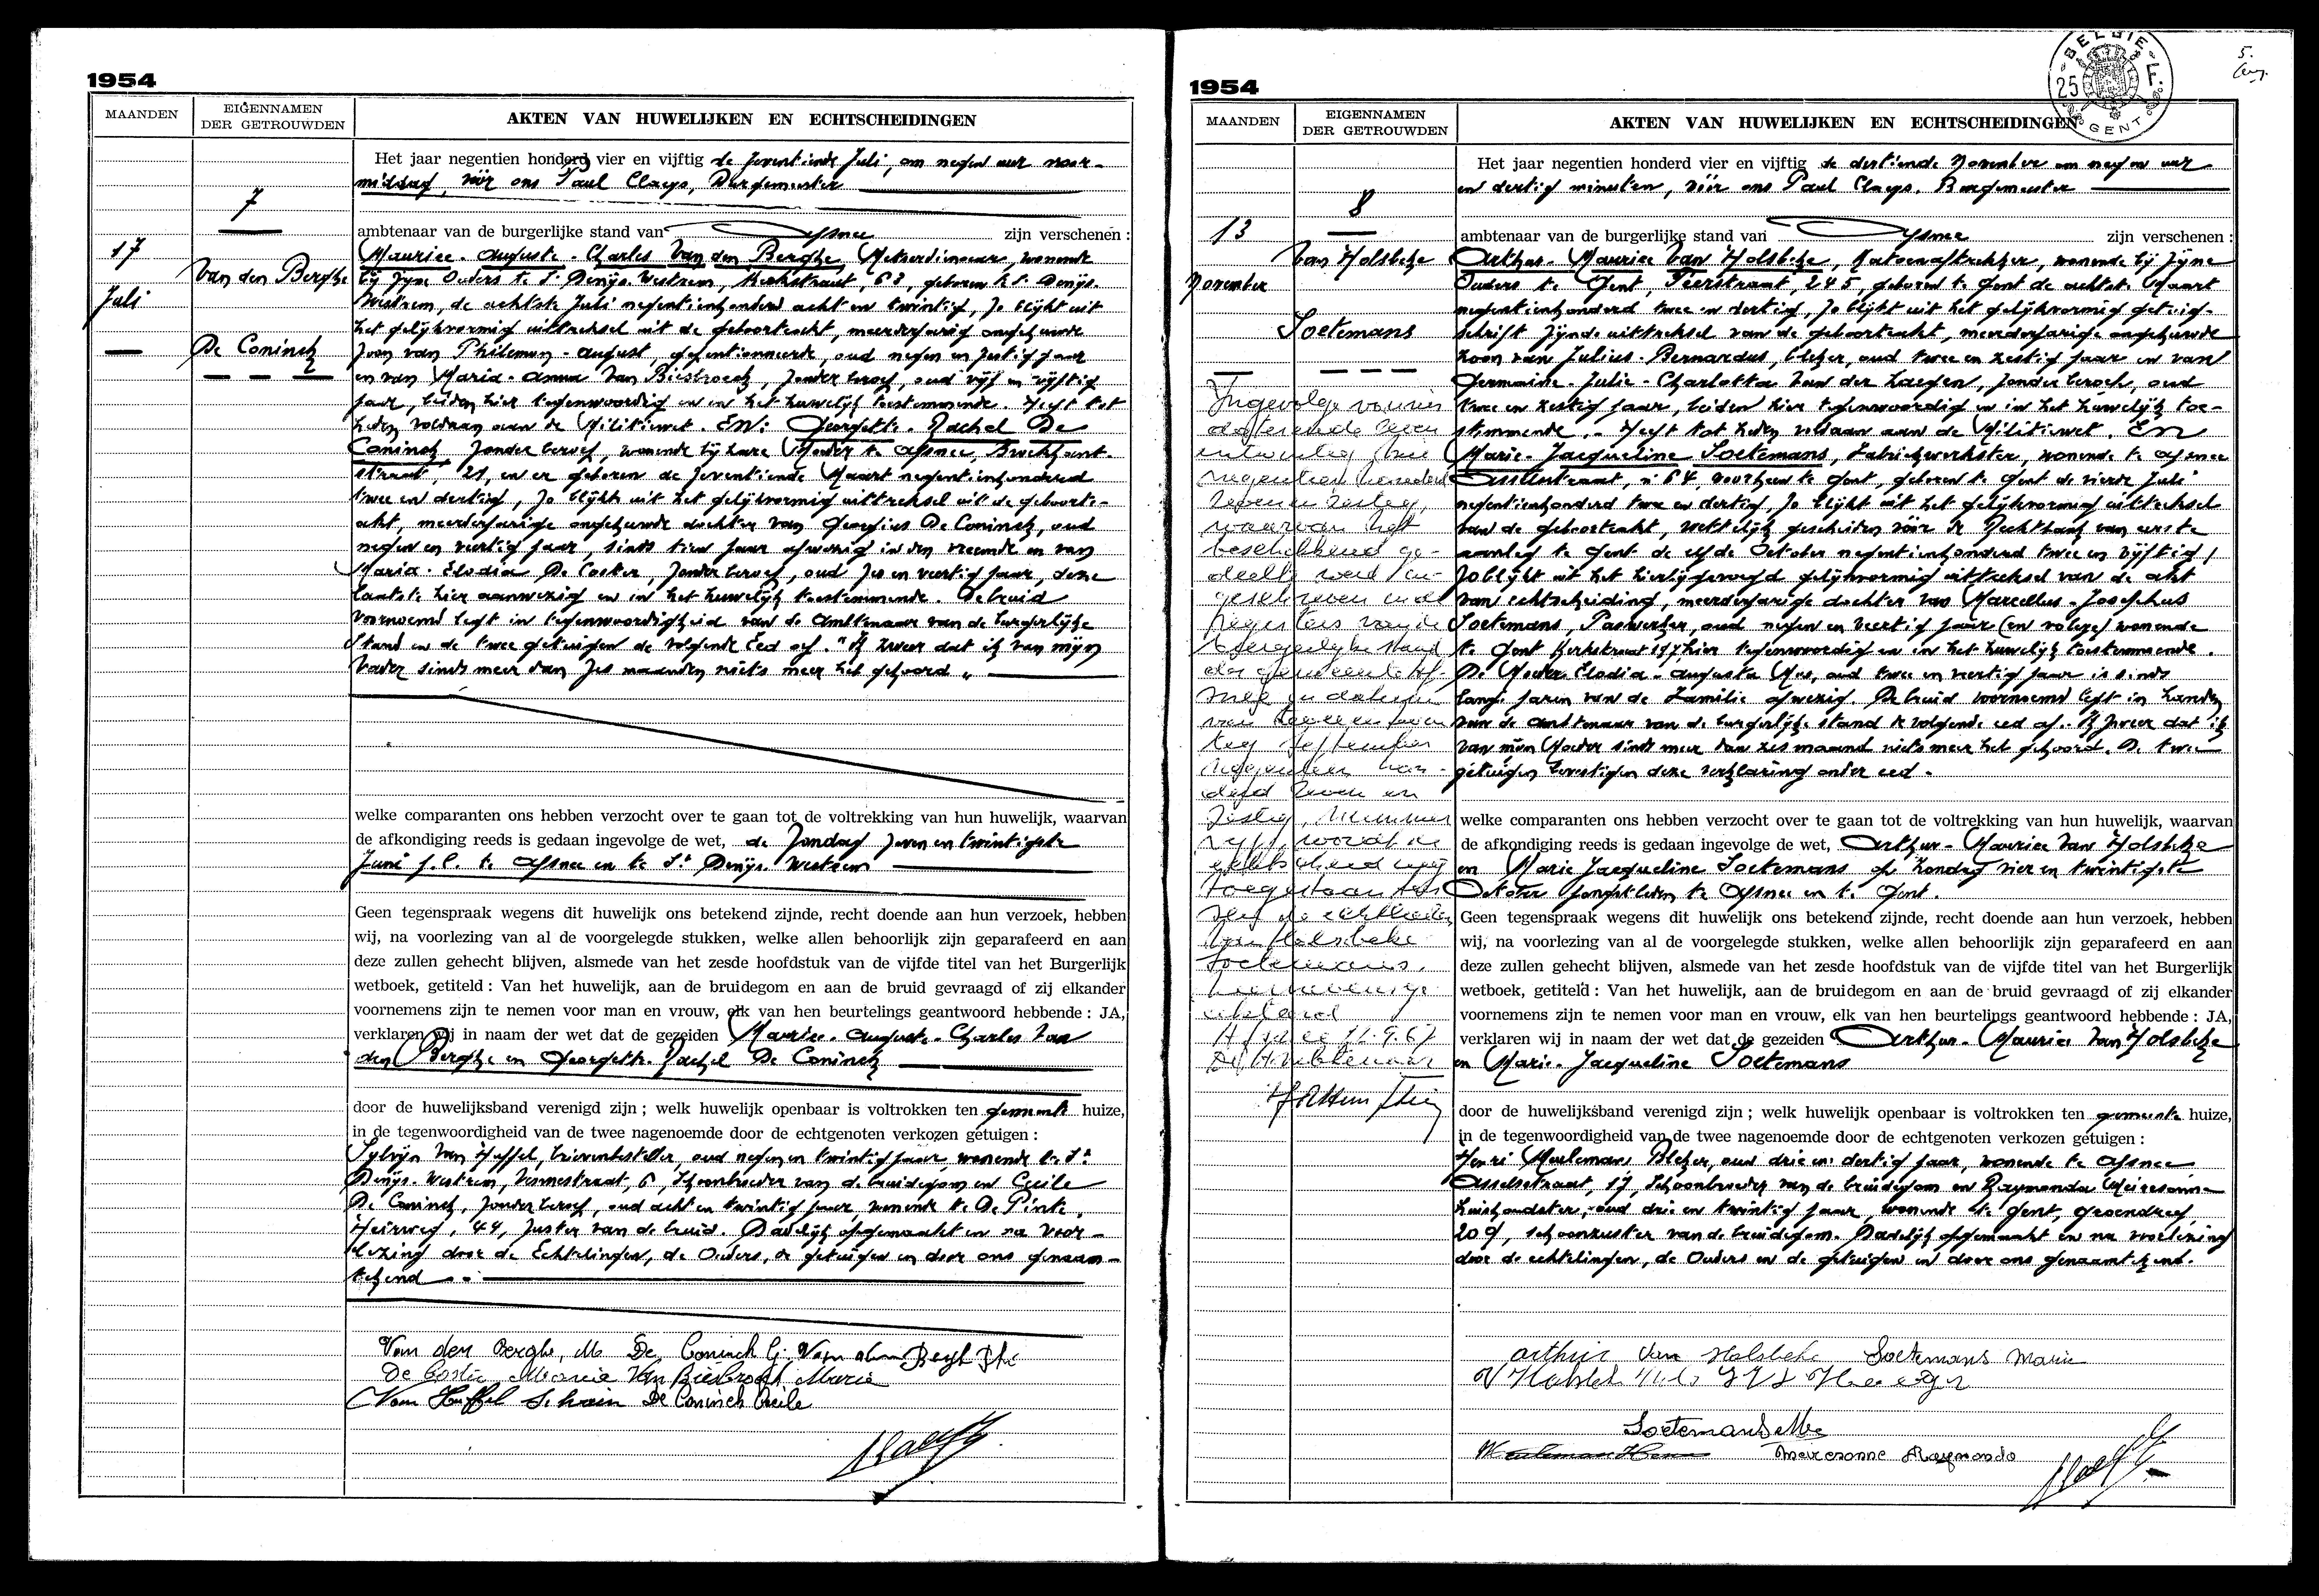 1954
MAANDEN
EIGENNAMEN
DER GETROUWDEN
AKTEN VAN HUWELIJKEN EN ECHTSCHEIDINGEN
7
17
Juli
Van den Berghe
De Coninck
Het jaar negentien honderd vier en vijftig de zeventiende Juli, om negen uur voor-
middag, vóór ons Paul Claeys, Burgemeester
ambtenaar van de burgerlijke stand van Afsnee zijn verschenen :
Maurice - Auguste - Charles Van den Berghe, wonende
bij zijne Ouders te St Denijs Westrem, Kerkstraat, 63, geboren te St Denijs
Westrem, de achtste Juli negentienhonderd acht en twintig, zo blijkt uit
het gelijkvormig uittreksel uit de geboorteakt, meerderjarig ongehuwde
zoon van Philemon - August, gepentionneerde, oud negen en zestig jaar
en van Maria - Anna Van Biesbroeck, zonder beroep, oud vijf en vijftig
jaar, beiden hier tegenwoordig en in het huwelijk toestemmende. Heeft tot
heden voldaan aan de Militiewet. En: Georgette - Rachel De
Coninck zonder beroep, wonende bij hare Moeder te Afsnee,
straat, 21, en er geboren de zeventiende Maart negentienhonderd
twee en dertig, zo blijkt uit het gelijkvormig uittreksel uit de geboorte-
akt, meerderjarige ongehuwde dochter van Georgius De Coninck, oud
negen en veertig jaar, sinds tien jaar afwezig in den vreemde en van
Maria - Elodia De Coster, zonder beroep, oud zes en veertig jaar, deze
laatste hier aanwezig en in het huwelijk toestemmende. De bruid
voornoemd legt in tegenwoordigheid van de Ambtenaar van de burgerlijke
Stand en de twee getuigen de volgende Eed af. "Ik zweer dat ik van mijn
Vader sinds meer dan zes maanden niets meer heb gehoord"
welke comparanten ons hebben verzocht over te gaan tot de voltrekking van hun huwelijk, waarvan
de afkondiging reeds is gedaan ingevolge de wet, de Zondag zeven en twintigste
Juni j.l. te Afsnee en te St Denijs Westrem
Geen tegenspraak wegens dit huwelijk ons betekend zijnde, recht doende aan hun verzoek, hebben
wij, na voorlezing van al de voorgelegde stukken, welke allen behoorlijk zijn geparafeerd en aan
deze zullen gehecht blijven, alsmede van het zesde hoofdstuk van de vijfde titel van het Burgerlijk
wetboek, getiteld : Van het huwelijk, aan de bruidegom en aan de bruid gevraagd of zij elkander
voornemens zijn te nemen voor man en vrouw, elk van hen beurtelings geantwoord hebbende : JA,
verklaren wij in naam der wet dat de gezeiden Maurice - Auguste - Charles Van
den Berghe en Georgette - Rachel De Coninck
door de huwelijksband verenigd zijn ; welk huwelijk openbaar is voltrokken ten gemeente huize,
in de tegenwoordigheid van de twee nagenoemde door de echtgenoten verkozen getuigen :
Sylvijn Van Heffel, brievenbesteller, oud negen en twintig jaar, wonende te St
Denijs Westrem, 6, Schoonbroeder van de bruidegom en Cecile
De Coninck, zonder beroep, oud acht en twintig jaar, wonende te De Pinte,
Heirweg, 44, zuster van de bruid. Dadelijk opgemaakt en na voor-
lezing door de Echtelingen, de Ouders, de getuigen en door ons genaam-
tekend
Van den Berghe, M De Coninck G. Van den Berghe Ph
De Coster Maria Van Biesbroeck Maria
Van Heffel S De Coninck Cecile
1954
BELGIE
25 F.
GENT
5.
MAANDEN
EIGENNAMEN
DER GETROUWDEN
AKTEN VAN HUWELIJKEN EN ECHTSCHEIDINGEN
8
13
November
Van Holsbeke
Soetemans
Ingevolge vonnis
negentien honderd
zeven en zestig,
waarvan het
beschikkend ge-
deelte werd in-
geschreven in de
registers van de
burgerlijke stand
der gemeente Af-
snee op datum
van
September
negentien hon-
derd zeven en
zestig, nummer
wordt de
echtscheiding
toegestaan
de echtelieden
Van Holsbeke
Soetemans.
Afsnee 22.9.67
De Ambtenaar
Het jaar negentien honderd vier en vijftig de dertiende November om negen uur
en dertig minuten, vóór ons Paul Claeys, Burgemeester
ambtenaar van de burgerlijke stand van Afsnee zijn verschenen :
Arthur - Maurice Van Holsbeke, wonende bij zijne
Ouders te Gent, Peerstraat, 245, geboren te Gent de achtste Maart
negentienhonderd twee en dertig, zo blijkt uit het gelijkvormig getuig-
schrift zijnde uittreksel van de geboorteakt, meerderjarige ongehuwde
zoon van Julius - Bernardus, bleker, oud twee en zestig jaar en van
Germaine - Julie - Charlotte Van der Haegen, zonder beroep, oud
twee en zestig jaar, beiden hier tegenwoordig en in het huwelijk toe-
stemmende. - Heeft tot heden voldaan aan de Militiewet. En
Marie - Jacqueline Soetemans, Fabriekwerkster, wonende te Afsnee
Asselstraat, n 64 voorheen te Gent, geboren te Gent de vierde Juli
negentienhonderd twee en dertig, zo blijkt uit het gelijkvormig uittreksel
van de geboorteakt, wettelijk gescheiden vóór de Rechtbank van eerste
aanleg te Gent de elfde October negentienhonderd twee en vijftig /
zo blijkt uit het hierbijgevoegd gelijkvormig uittreksel van de akt
van echtscheiding, meerderjarige dochter van Marcellus - Josephus
Soetemans, oud negen en veertig jaar wonende
te Gent Kerkstraat 197, hier tegenwoordig en in het huwelijk toestemmende.
De Moeder Elodia - Augusta Mus, oud twee en veertig jaar is sinds
lange jaren van de Familie afwezig. De bruid voornoemd legt in handen
van de ambtenaar van de burgerlijke stand de volgende eed af. Ik zweer dat ik
van mijn Moeder sinds meer dan zes maand niets meer heb gehoord. De twee
getuigen bevestigen deze verklaring onder eed.
welke comparanten ons hebben verzocht over te gaan tot de voltrekking van hun huwelijk, waarvan
de afkondiging reeds is gedaan ingevolge de wet, Arthur - Maurice Van Holsbeke
en Marie Jacqueline Soetemans op Zondag vier en twintigste
October jongstleden te Afsnee en te Gent.
Geen tegenspraak wegens dit huwelijk ons betekend zijnde, recht doende aan hun verzoek, hebben
wij, na voorlezing van al de voorgelegde stukken, welke allen behoorlijk zijn geparafeerd en aan
deze zullen gehecht blijven, alsmede van het zesde hoofdstuk van de vijfde titel van het Burgerlijk
wetboek, getiteld : Van het huwelijk, aan de bruidegom en aan de bruid gevraagd of zij elkander
voornemens zijn te nemen voor man en vrouw, elk van hen beurtelings geantwoord hebbende : JA,
verklaren wij in naam der wet dat de gezeiden Arthur - Maurice Van Holsbeke
en Marie - Jacqueline Soetemans
door de huwelijksband verenigd zijn ; welk huwelijk openbaar is voltrokken ten gemeente huize,
in de tegenwoordigheid van de twee nagenoemde door de echtgenoten verkozen getuigen :
Henri Meuleman, Bleker, oud drie en dertig jaar, wonende te Afsnee
Asselsstraat, 17, Schoonbroeder van de bruidegom en Raymonda Meiresonne
huishoudster, oud drie en twintig jaar, wonende te Gent, Groendreef,
209, schoonzuster van de bruidegom. Dadelijk opgemaakt en na voorlezing
door de echtelingen, de Ouders en de getuigen en door ons genaamtekend.
Arthur Van Holsbeke Soetemans Marie
Soetemans
Meuleman Henri Meiresonne Raymonda